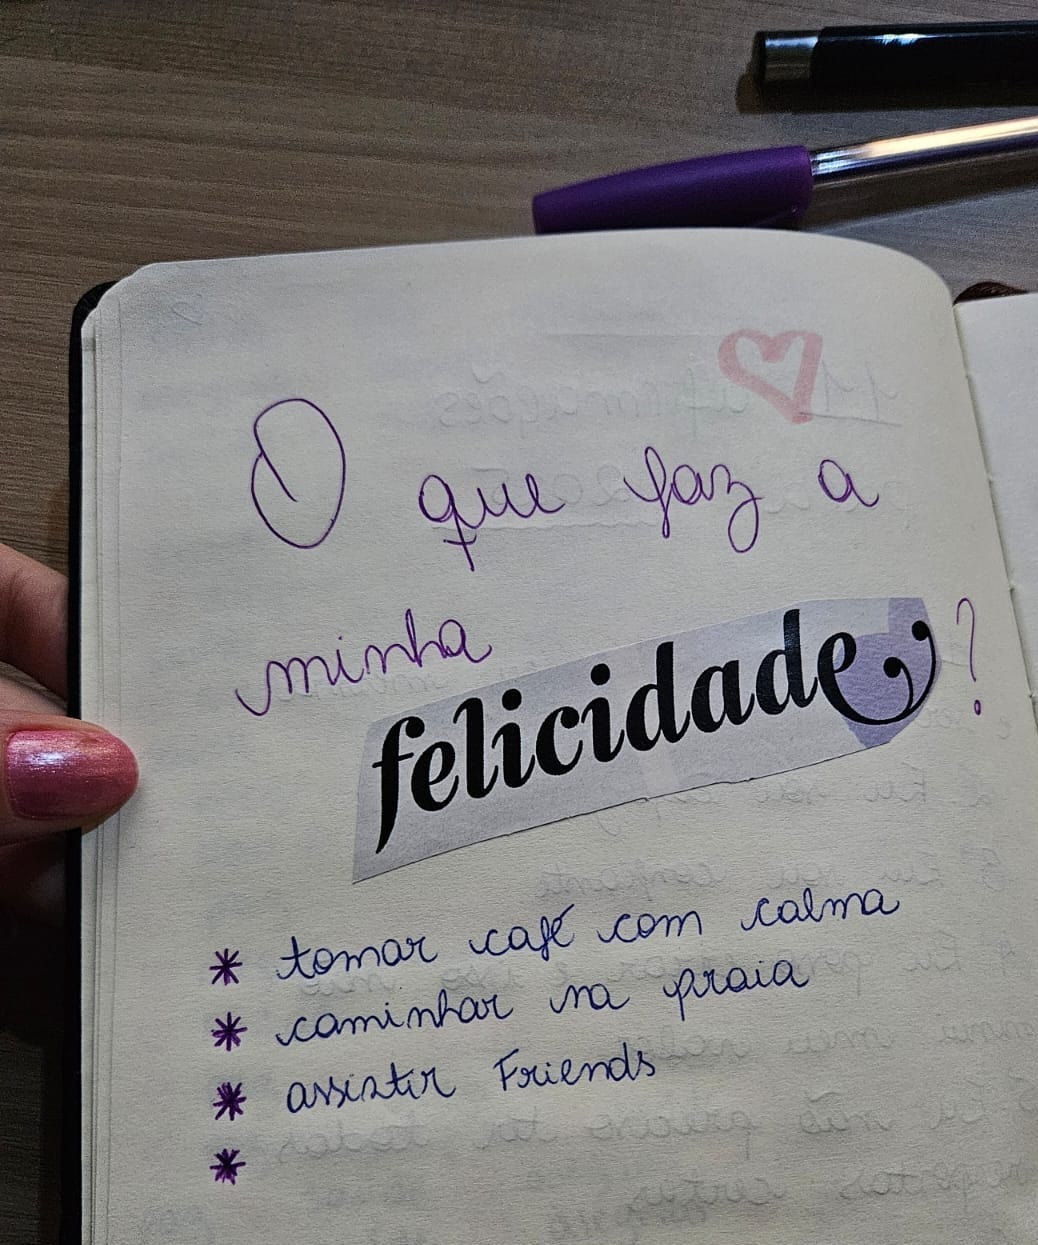 O que faz a
minha felicidade?
* tomar café com calma
* caminhar na praia
* assistir Friends
*